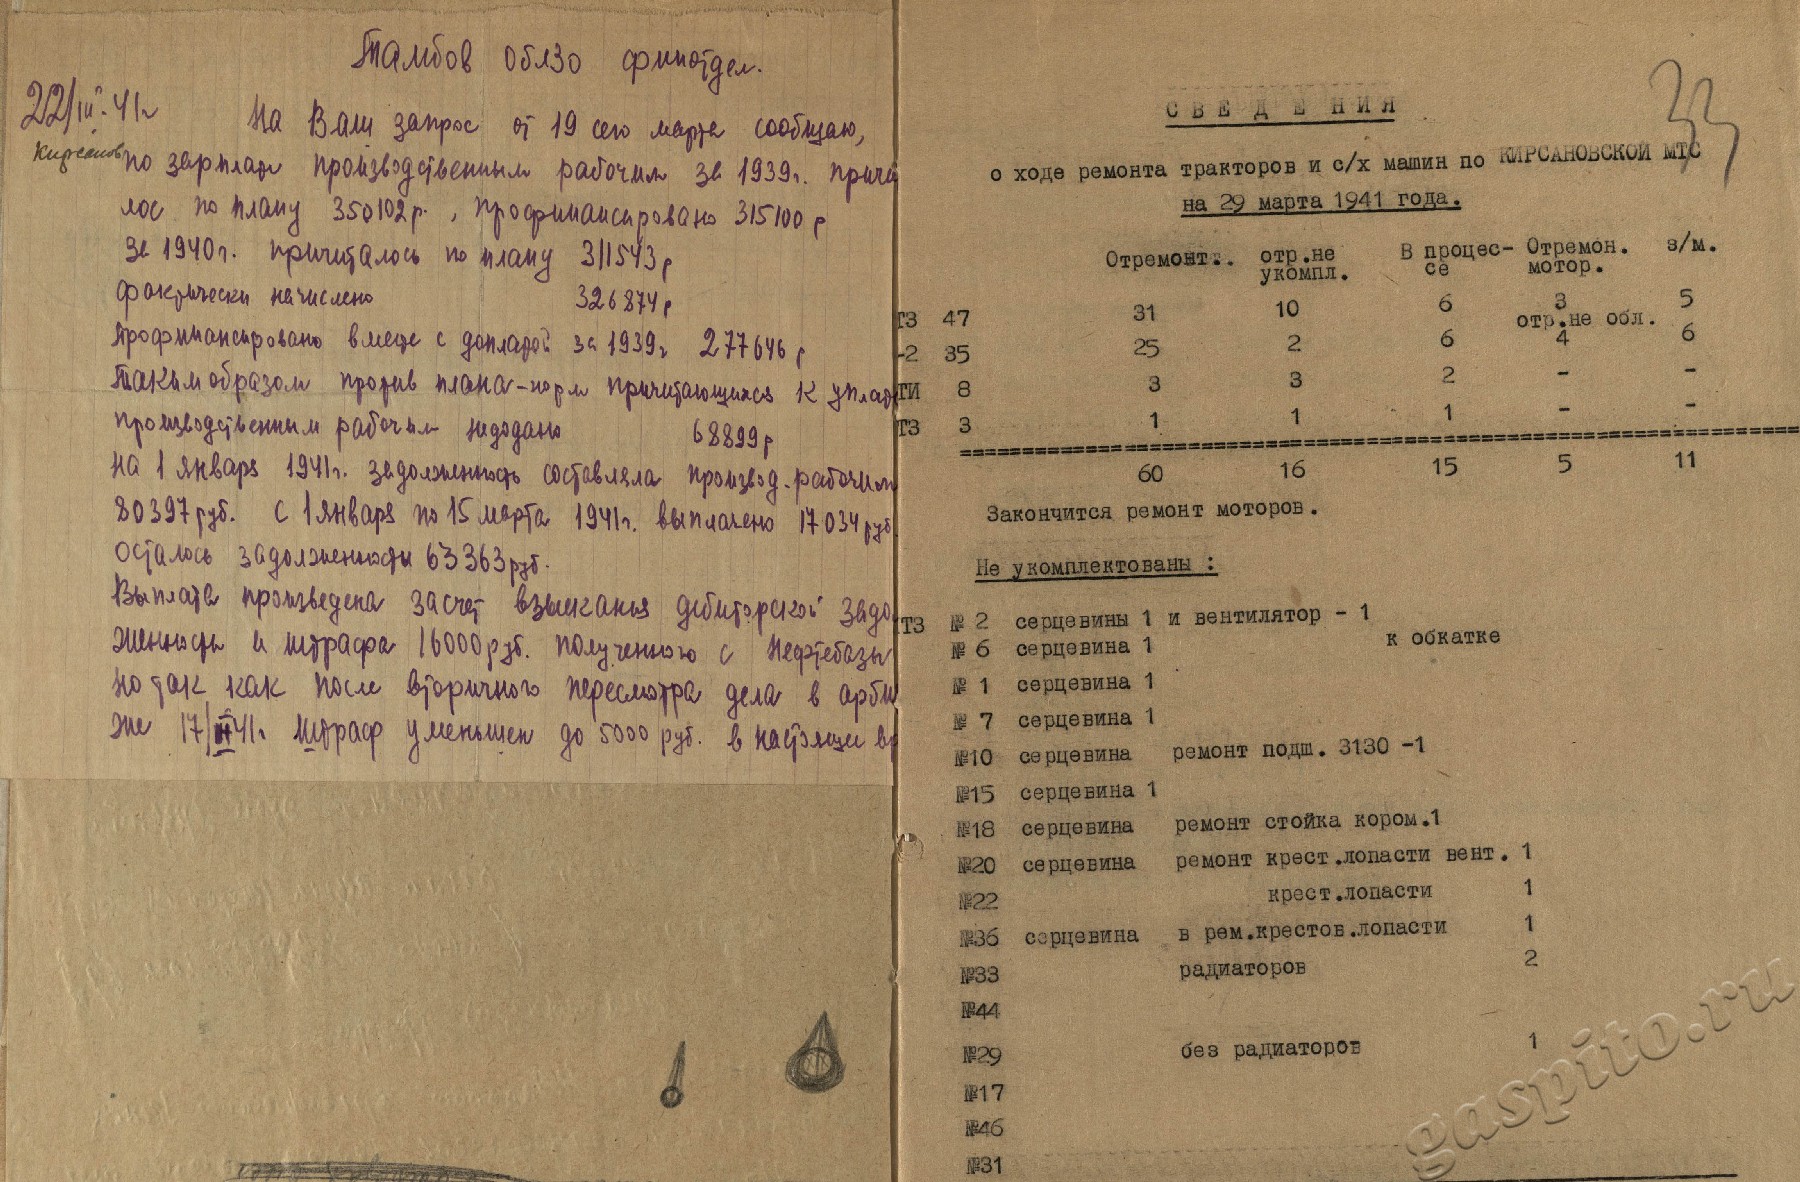 Тамбов облзо финотдел.
22/III-41г
Кирсанов
На Ваш запрос от 19 сего марта сообщаю,
по зарплате производственным рабочим за 1939г. причи
лос по плану 350102р., профинансировано 315100р
за 1940г. причиталось по плану 311543р
фактически начислено 326874р
Профинансировано вместе с доплатой за 1939г 277646р
Таким образом против плана-норм причитающихся к уплате
производственным рабочим недодано 68899р
на 1 января 1941г. задолженность составляла производ. рабочим
80397руб. С 1 января по 15 марта 1941г. выплачено 17034руб
осталось задолженности 63363руб.
Выплата произведена за счет взыскания дебиторской задо
женности и штрафа 16000руб. полученного с Нефтебазы
но так как после вторичного пересмотра дела в арби
же 17/III 41г. штраф уменьшен до 5000 руб. в настоящее вр
33
СВЕДЕНИЯ
о ходе ремонта тракторов и с/х машин по КИРСАНОВСКОЙ МТС
на 29 марта 1941 года.
Отремонт.. отр.не укомпл. В процес-се Отремон. мотор. з/м.
ТЗ 47 31 10 6 3 5
отр.не обл.
-2 35 25 2 6 4 6
ТИ 8 3 3 2 - -
ТЗ 3 1 1 1 - -
60 16 15 5 11
Закончится ремонт моторов.
Не укомплектованы :
ТЗ № 2 серцевины 1 и вентилятор - 1
№ 6 серцевина 1 к обкатке
№ 1 серцевина 1
№ 7 серцевина 1
№10 серцевина ремонт подш. 3130 -1
№15 серцевина 1
№18 серцевина ремонт стойка кором.1
№20 серцевина ремонт крест.лопасти вент. 1
№22 крест.лопасти 1
№36 серцевина в рем.крестов.лопасти 1
№33 радиаторов 2
№44
№29 без радиаторов 1
№17
№46
№31
gaspito.ru